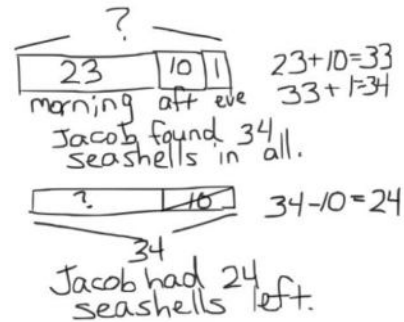 ?
23 10 1
morning aft eve
23+10=33
33+1=34
Jacob found 34
seashells in all.
? 10
34-10=24
34
Jacob had 24
seashells left.